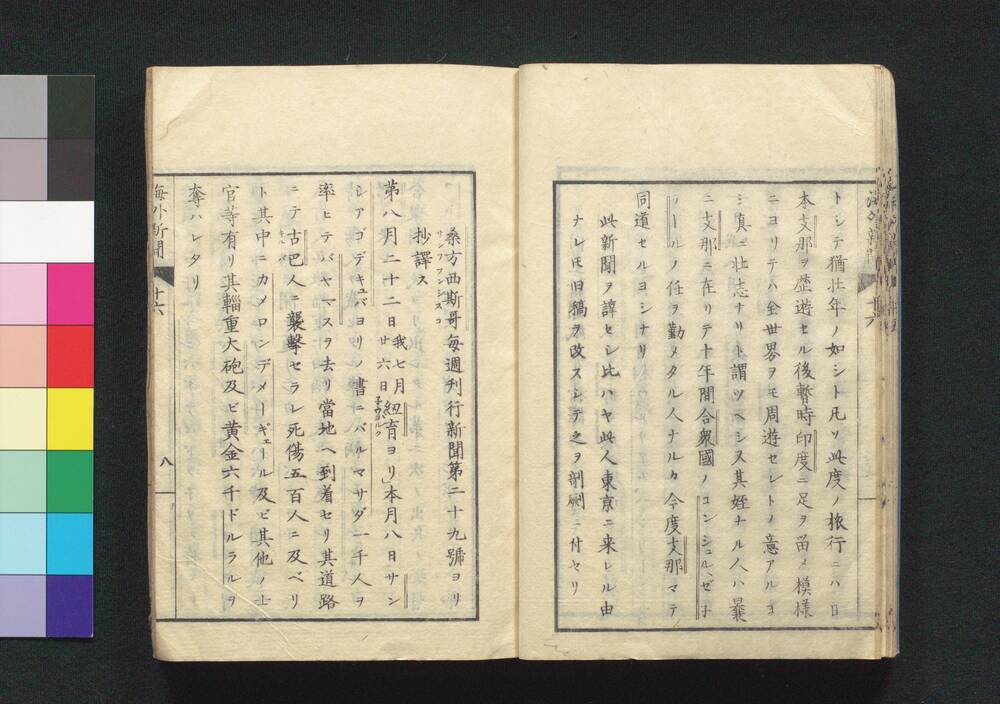 トシテ猶壮年ノ如シト凡ソ此度ノ旅行ニハ日
本支那ヲ歴遊セル後暫時印度ニ足ヲ留メ模様
ニヨリテハ全世界ヲモ周遊セント意アルヨ
シ真ニ壮志ナリト謂ツヘシ又其姪ナル人ハ曩
ニ支那ニ在リテ十年間合衆國ノコンシュルゼ子
ラールノ任ヲ勤メタル人ナルカ今度支那マテ
同道セルヨシナリ
此新聞ヲ譯セシ比ハヤ此人東京ニ来レル由
ナレ𪜈旧稿ヲ改スシテ之ヲ剞劂ニ付セリ
桑方西斯哥毎週刊行新聞第二十九號ヨリ
サンフランシスコ
抄譯ス
第八月二十二日我七月廿六日紐育ヨリ本月八日サン
シアゴデキュバヨリノ書ニバルマサダ一千人ヲ
率ヒテバヤマスヲ去リ當地ヘ到着セリ其道路
ニテ古巴人ニ襲撃セラレ死傷五百人ニ及ベリ
ト其中ニカメロンデメーギェール及ビ其他ノ士
官等有リ其輜重大砲及ビ黄金六千ドルラルヲ
奪ハレタリ
海外新聞
十六
八